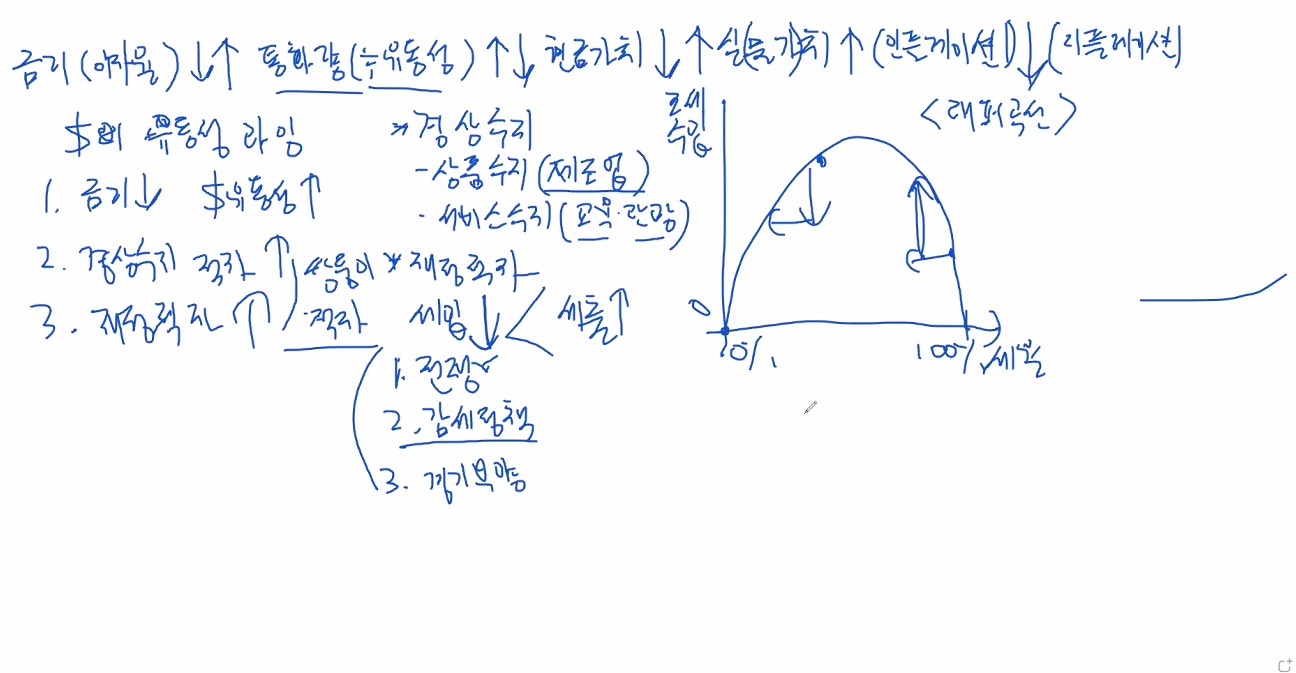 금리(이자율) ↓↑ 통화량(≒유동성) ↑↓ 현금가치 ↓↑ 실(물가치) ↑ (인플레이션) ↓ (디플레이션)
$의 유동성 라임
1. 금리↓ $유동성↑
2. 경상수지 적자 ↑
3. 재정적자 ↑
쌍둥이
적자
* 경상수지
- 상품수지 (제조업)
- 서비스수지 (교육·관광)
* 재정적자
세입 ↓ < 세출↑
1. 전쟁
2. 감세정책
3. 경기부양
<래퍼곡선>
조세
수입
0
0%
100%
세율